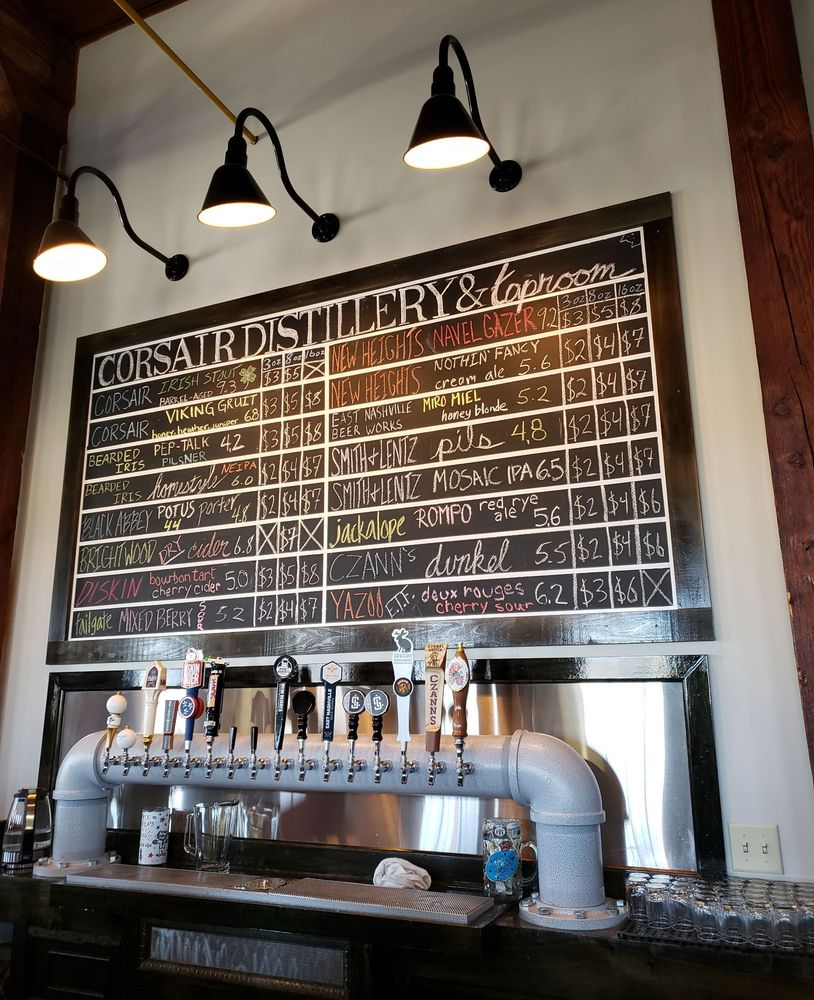 CORSAIR DISTILLERY & taproom
3oz 8oz 16oz
CORSAIR IRISH STOUT BARREL-AGED 9.3 $3 $5 X
CORSAIR VIKING GRUIT honey, heather, juniper 6.8 $3 $5 $8
BEARDED IRIS PEP-TALK PILSNER 4.2 $3 $5 $8
BEARDED IRIS homestyle NEIPA 6.0 $2 $4 $7
BLACK ABBEY POTUS 44 porter 4.8 $2 $4 $7
BRIGHTWOOD DRY cider 6.8 X $7 X
DISKIN bourbon tart cherry cider 5.0 $3 $5 $8
tailgate MIXED BERRY SOUR 5.2 $2 $4 $7
3oz 8oz 16oz
NEW HEIGHTS NAVEL GAZER 9.2 $3 $5 $8
NEW HEIGHTS NOTHIN' FANCY cream ale 5.6 $2 $4 $7
EAST NASHVILLE BEER WORKS MIRO MIEL honey blonde 5.2 $2 $4 $7
SMITH & LENTZ pils 4.8 $2 $4 $7
SMITH & LENTZ MOSAIC IPA 6.5 $2 $4 $7
jackalope ROMPO red rye ale 5.6 $2 $4 $6
CZANN's dunkel 5.5 $2 $4 $6
YAZOO E.T.F. deux rouges cherry sour 6.2 $3 $6 X
EAST NASHVILLE
CZANN'S